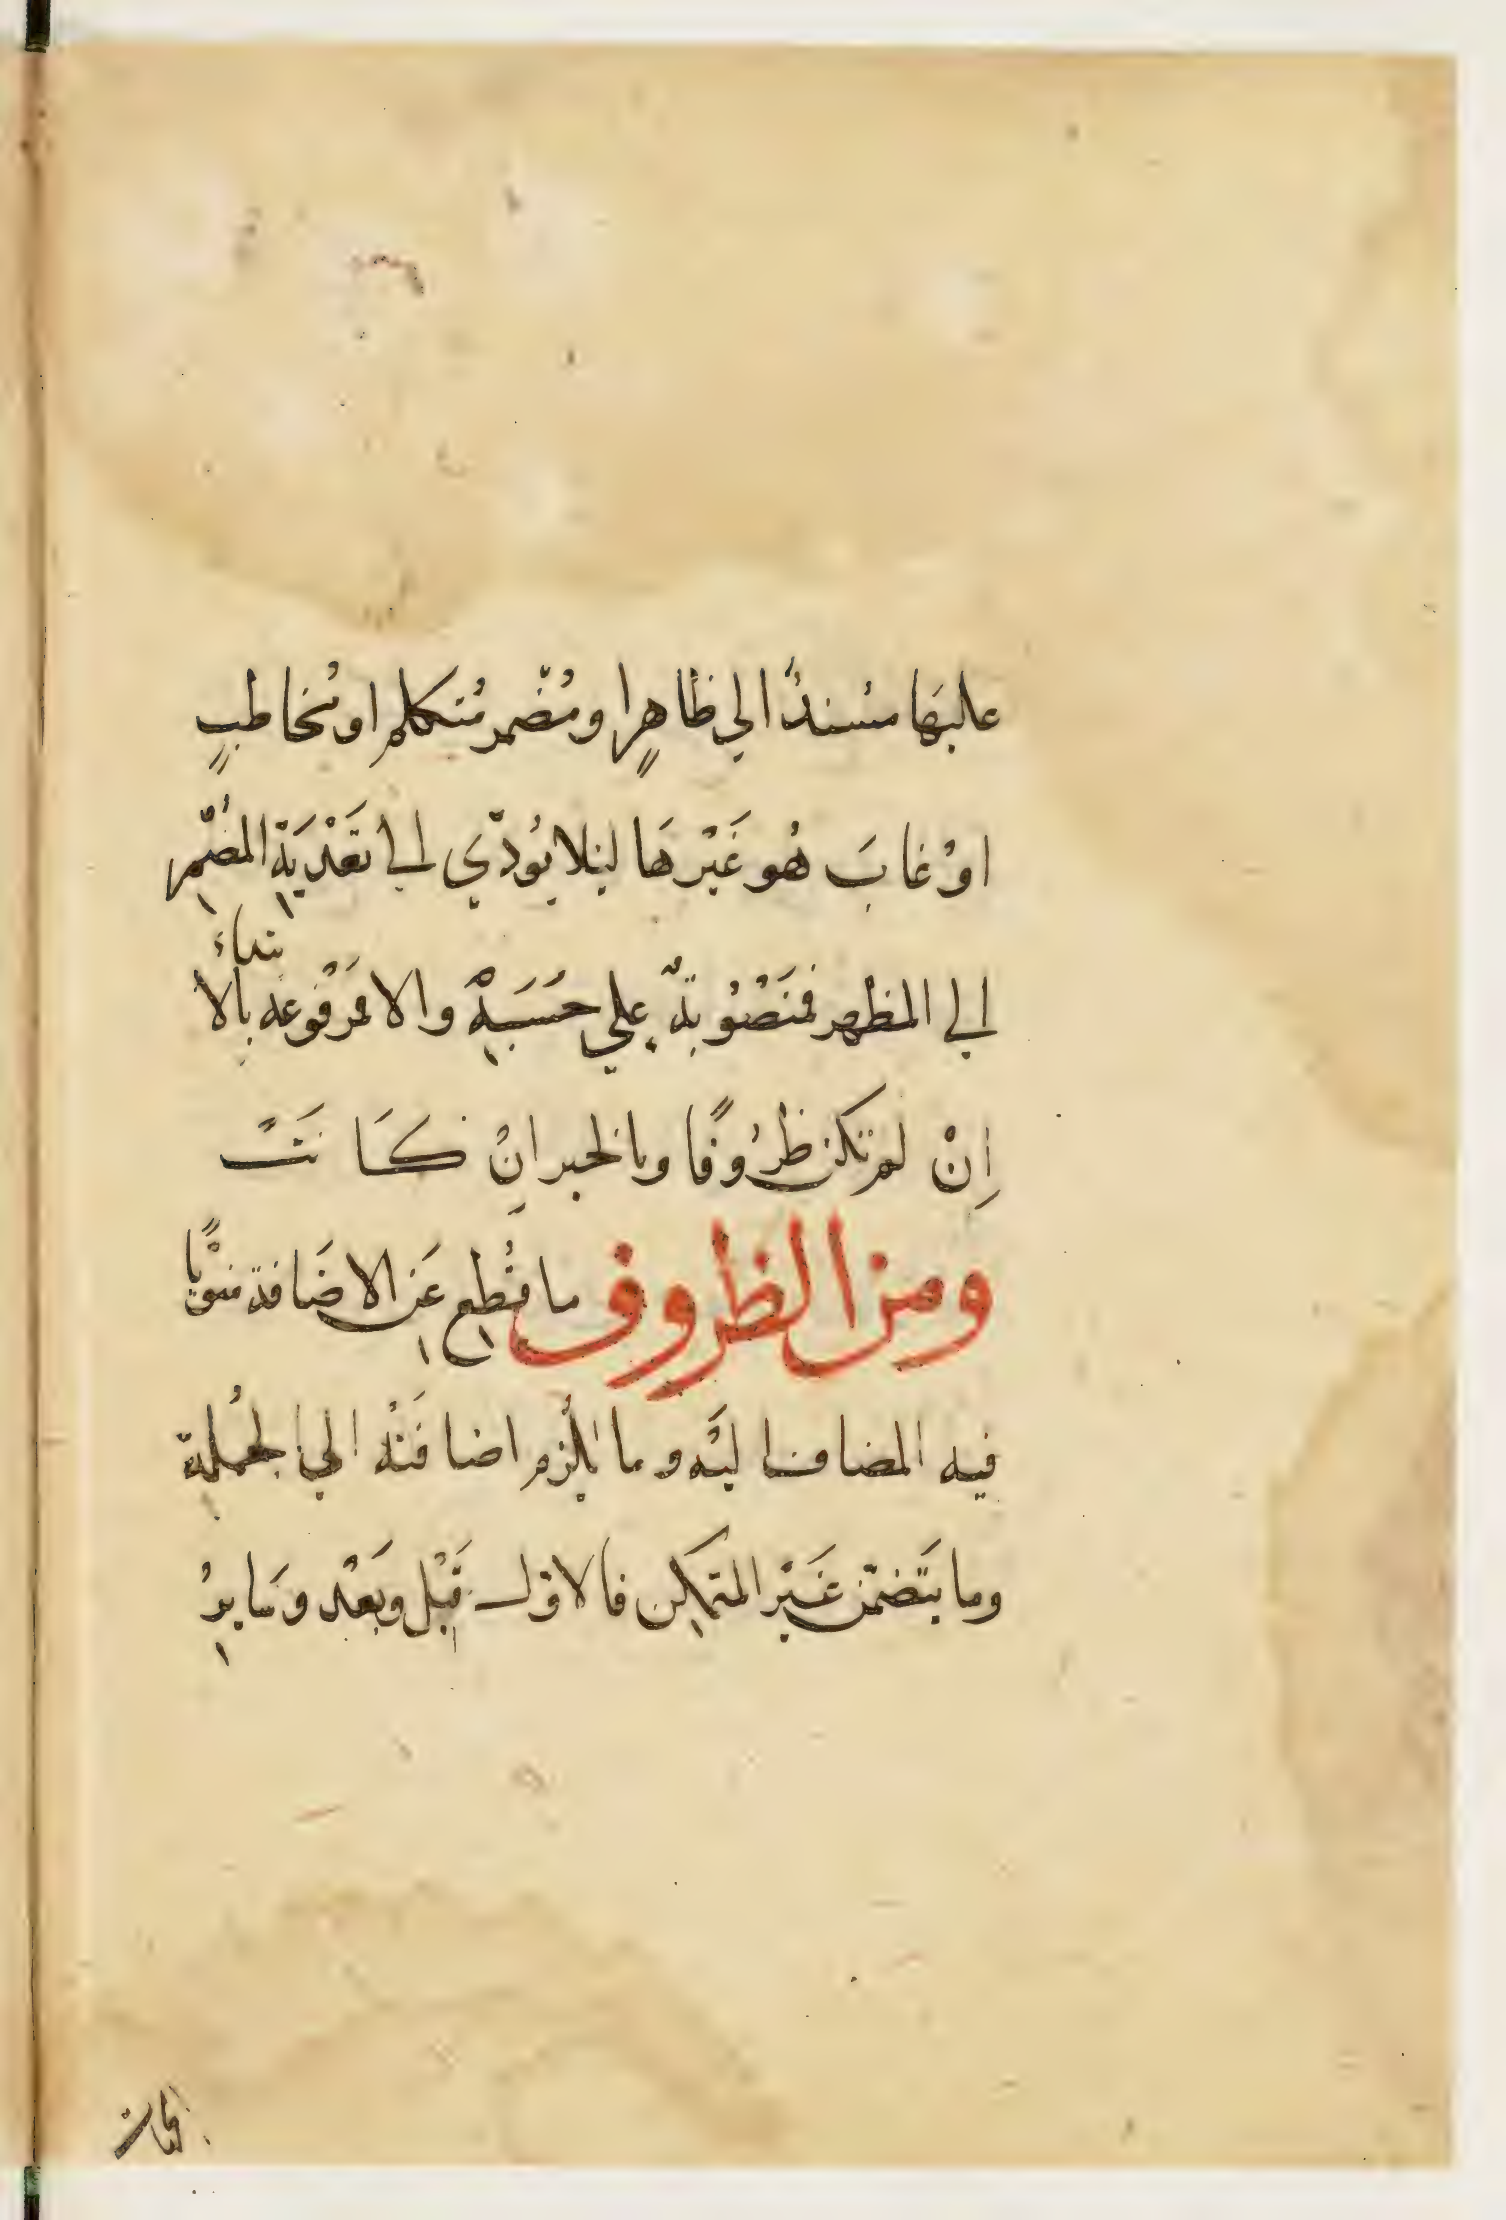 عليها مسندًا الي ظاهرٍ او مُضمر مُتكلم او مُخاطبٍ
اوْ غابَ هُو غَيْرهَا ليلا يُودّي الي تعْديَةِ المُضمر
الي المظهر فمنَصُوبةٌ علي حسَبِهِ والا فمرْفوعه بالا
بتداءِ
اِنْ لم تكن ظرُوفًا وبالخبر انْ كَانَتْ
ومن الظروف ما قُطِع عَنِ الاضَافة منويًّا
فيه المضاف اليْه وما يلزم اضافَتُه الي الجُملة
وما يتَضمّن غَيْر المتمكِن فالاوّل قَبْل وبَعْد وسَايِرُ
الجهات